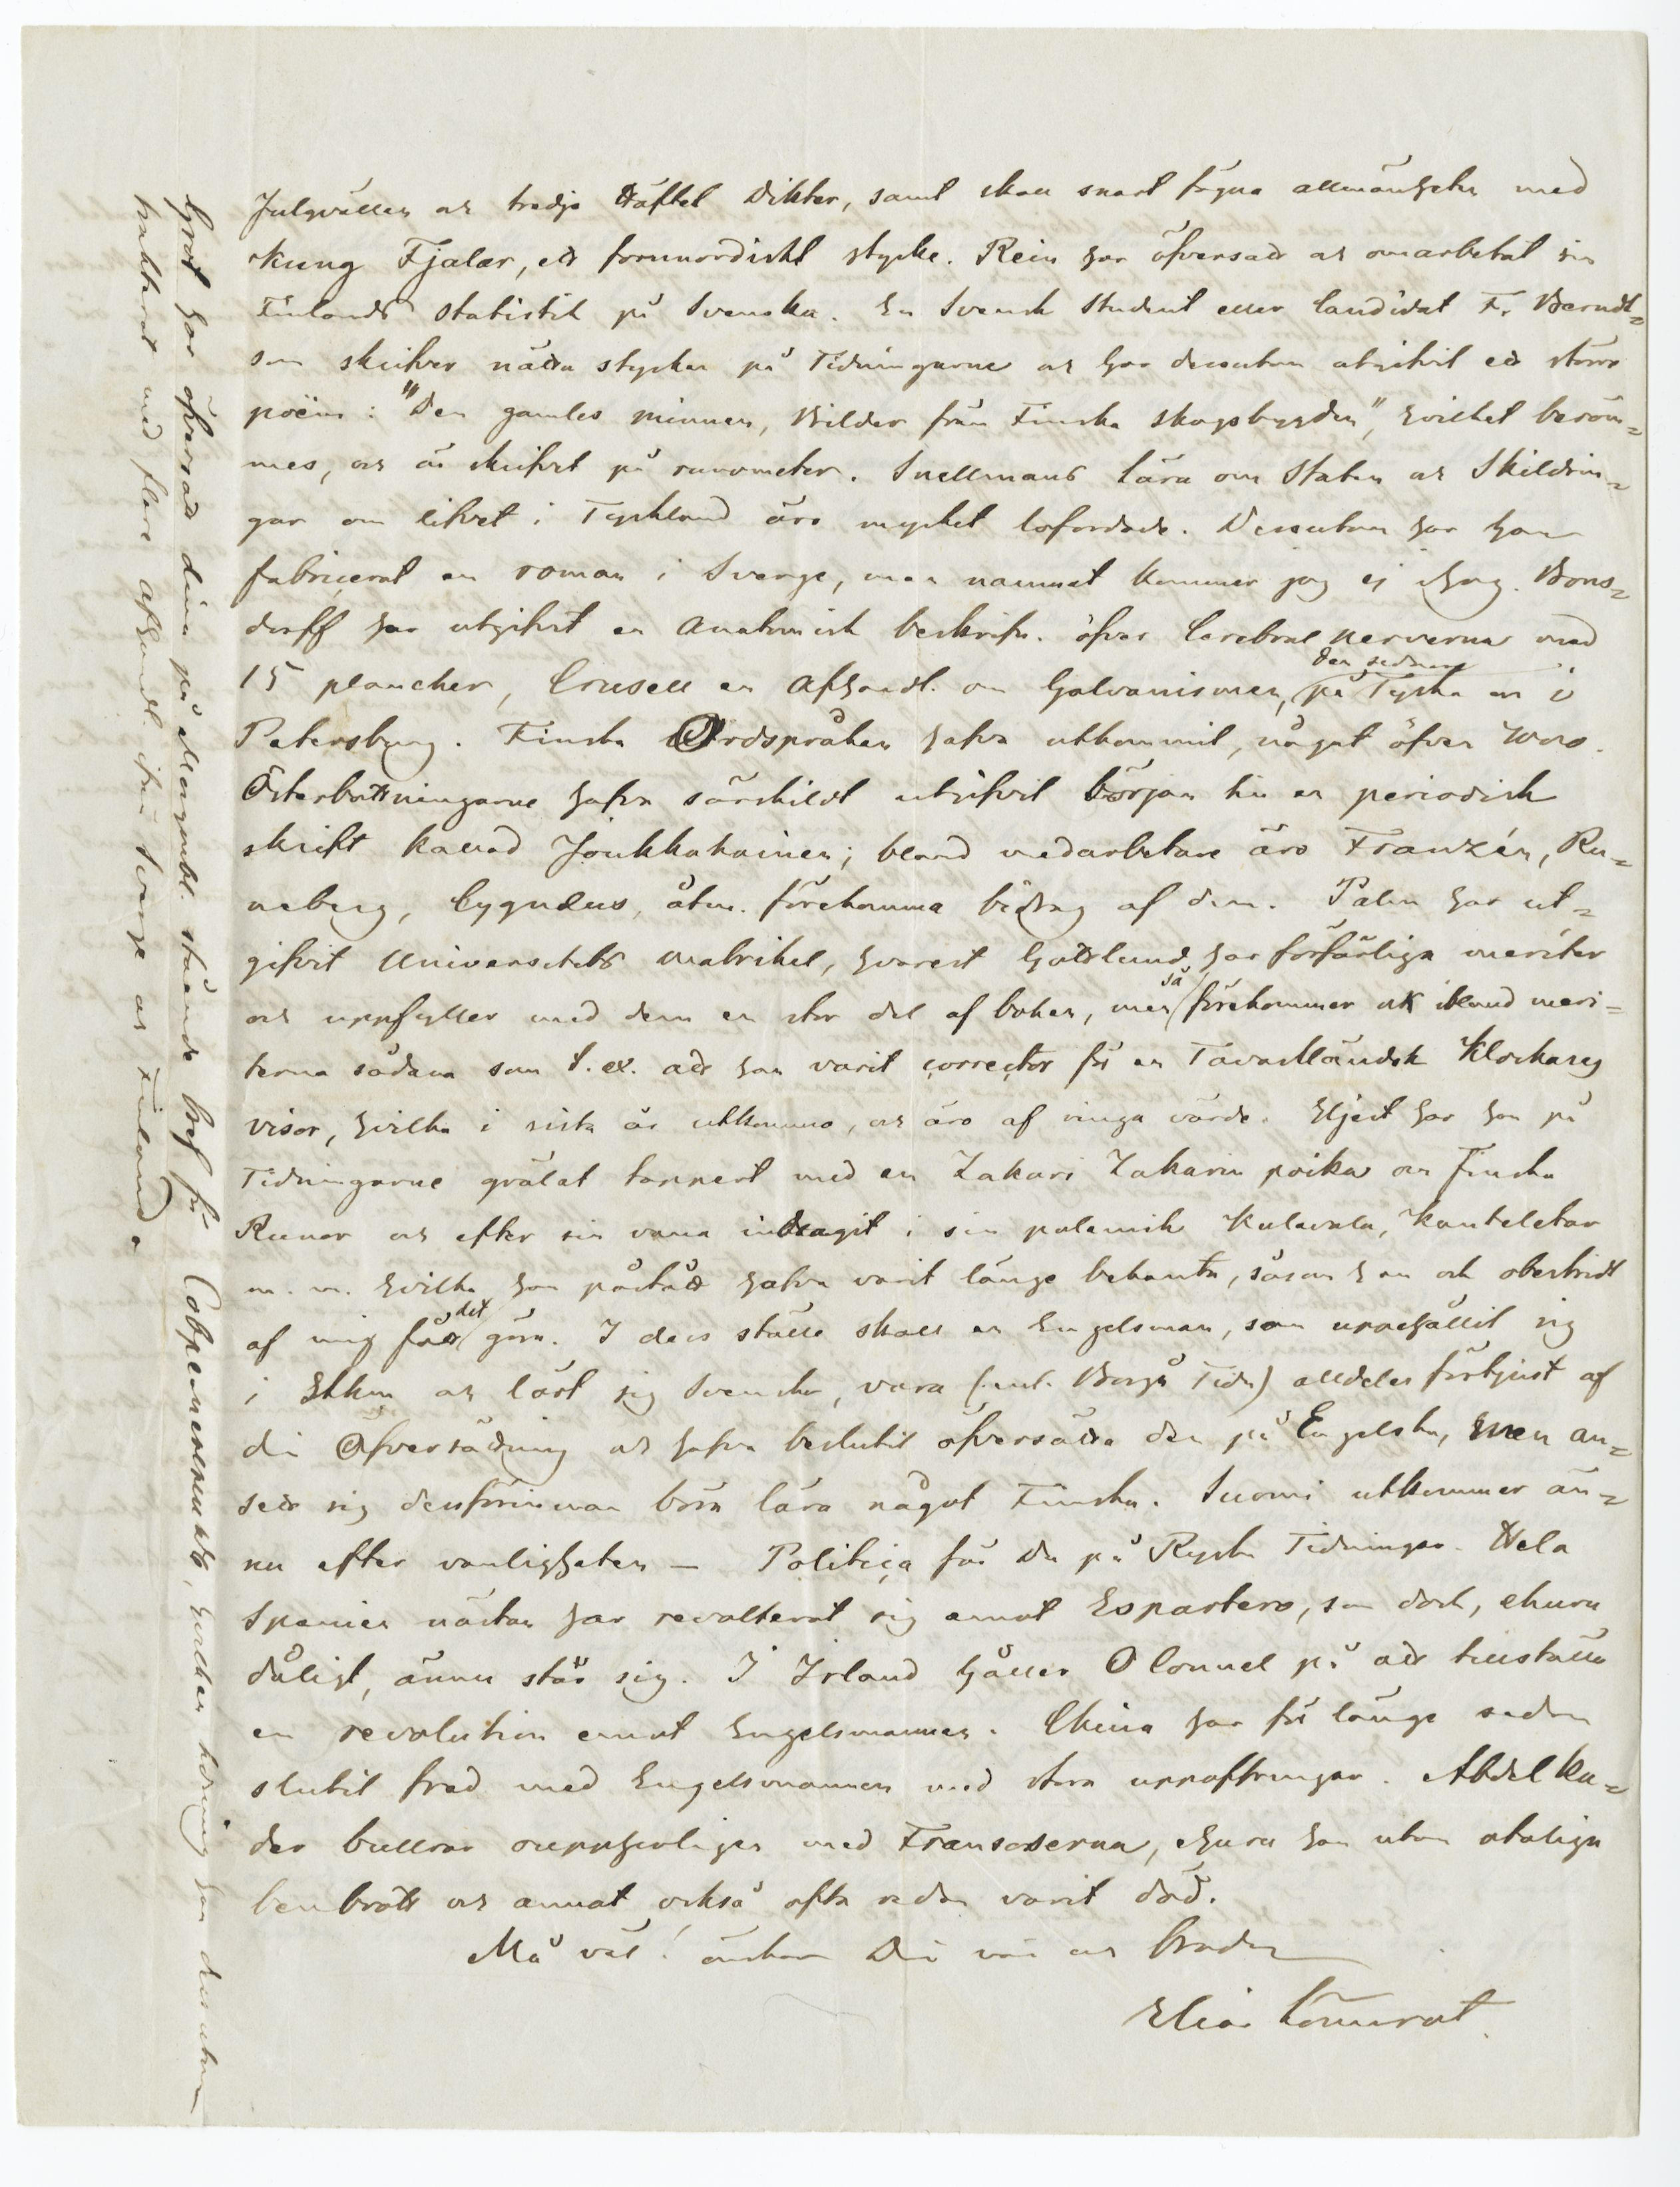 Julqvällen och tredje Häftet Dikter, samt skall snart fägna allmänheten med
Kung Fjalar, ett fornnordiskt stycke. Rein har öfversatt och omarbetat sin
Finlands Statistik på Svenska. En Svensk Student eller Candidat F. Berndt=
son skrifver nätta stycken på Tidningarne och har dessutom utgifvit ett större
poëm: "Den gamles minnen, Bilder från Finska skogsbygden", hvilket beröm=
mes, och är skrifvet på runometer. Snellmans Lära om Staten och Skildrin=
gar om lifvet i Tyskland äro mycket lofordade. Dessutom har han
fabricerat en roman i Sverge, men namnet kommer jag ej ihog. Bons=
dorff har utgifvit en Anatomisk beskrifn. öfver Cerebral nerverna med
15 plancher, Crusell en Afhandl. om Galvanismen, den sednare på Tyska och i
Petersburg. Finska Ordspråken hafva utkommit, något öfver 7000.
Österbottningarne hafva särskildt utgifvit början till en periodisk
skrift kallad Joukkahainen; bland medarbetare äro Franzén, Ru=
neberg, Cygnæus, åtm. förekomma bidrag af dem. Palm har ut=
gifvit Universitets Matrikel, hvarest Gottlund har förfärliga meriter
och uppfyller med dem en stor del af boken, men så förekommer ock ibland meri=
terna sådana som t. ex. att han varit corrector för en Tavastländsk Klockares
visor, hvilka i sista år utkommo, och äro af ringa värde. Eljest har han på
Tidningarne grälat tappert med en Zakari Zakarin poika om Finska
Runor och efter sin vana indragit i sin polemik Kalevala, Kanteletar
m. m. hvilka han påstått hafva varit länge bekanta, såsom han ock obestridt
af mig fått det göra. I dess ställe skall en Engelsman, som uppehållit sig
i Sthlm och lärt sig Svenska, vara (enl. Borgå Tidn) alldeles förtjust af
din Öfversättning och hafva beslutit öfversätta den på Engelska, men an=
sett sig dessförinnan böra lära något Finska. Suomi utkommer än=
nu efter vanligheten — Politica får Du på Ryska Tidningar. Hela
Spanien nästan har revolterat sig emot Espartero, som dock, ehuru
dåligt, ännu står sig. I Irland håller O Connel på att tillställa
en revolution emot Engelsmannen. China har för länge sedan
slutit fred med Engelsmannen med stora uppoffringar. Abdel Ka=
der bullrar oupphörligen med Fransoserna, ehuru han utom otaliga
benbrott och annat också ofta redan varit död.
Må väl! önskar Din vän och Broder
Elias Lönnrot.
Grot har öfversatt dina på Morgonbl. stående bref för Современникъ, hvilken tidning han dessutom
riktat med flere afhandl. ifrån Sverge och Finland.